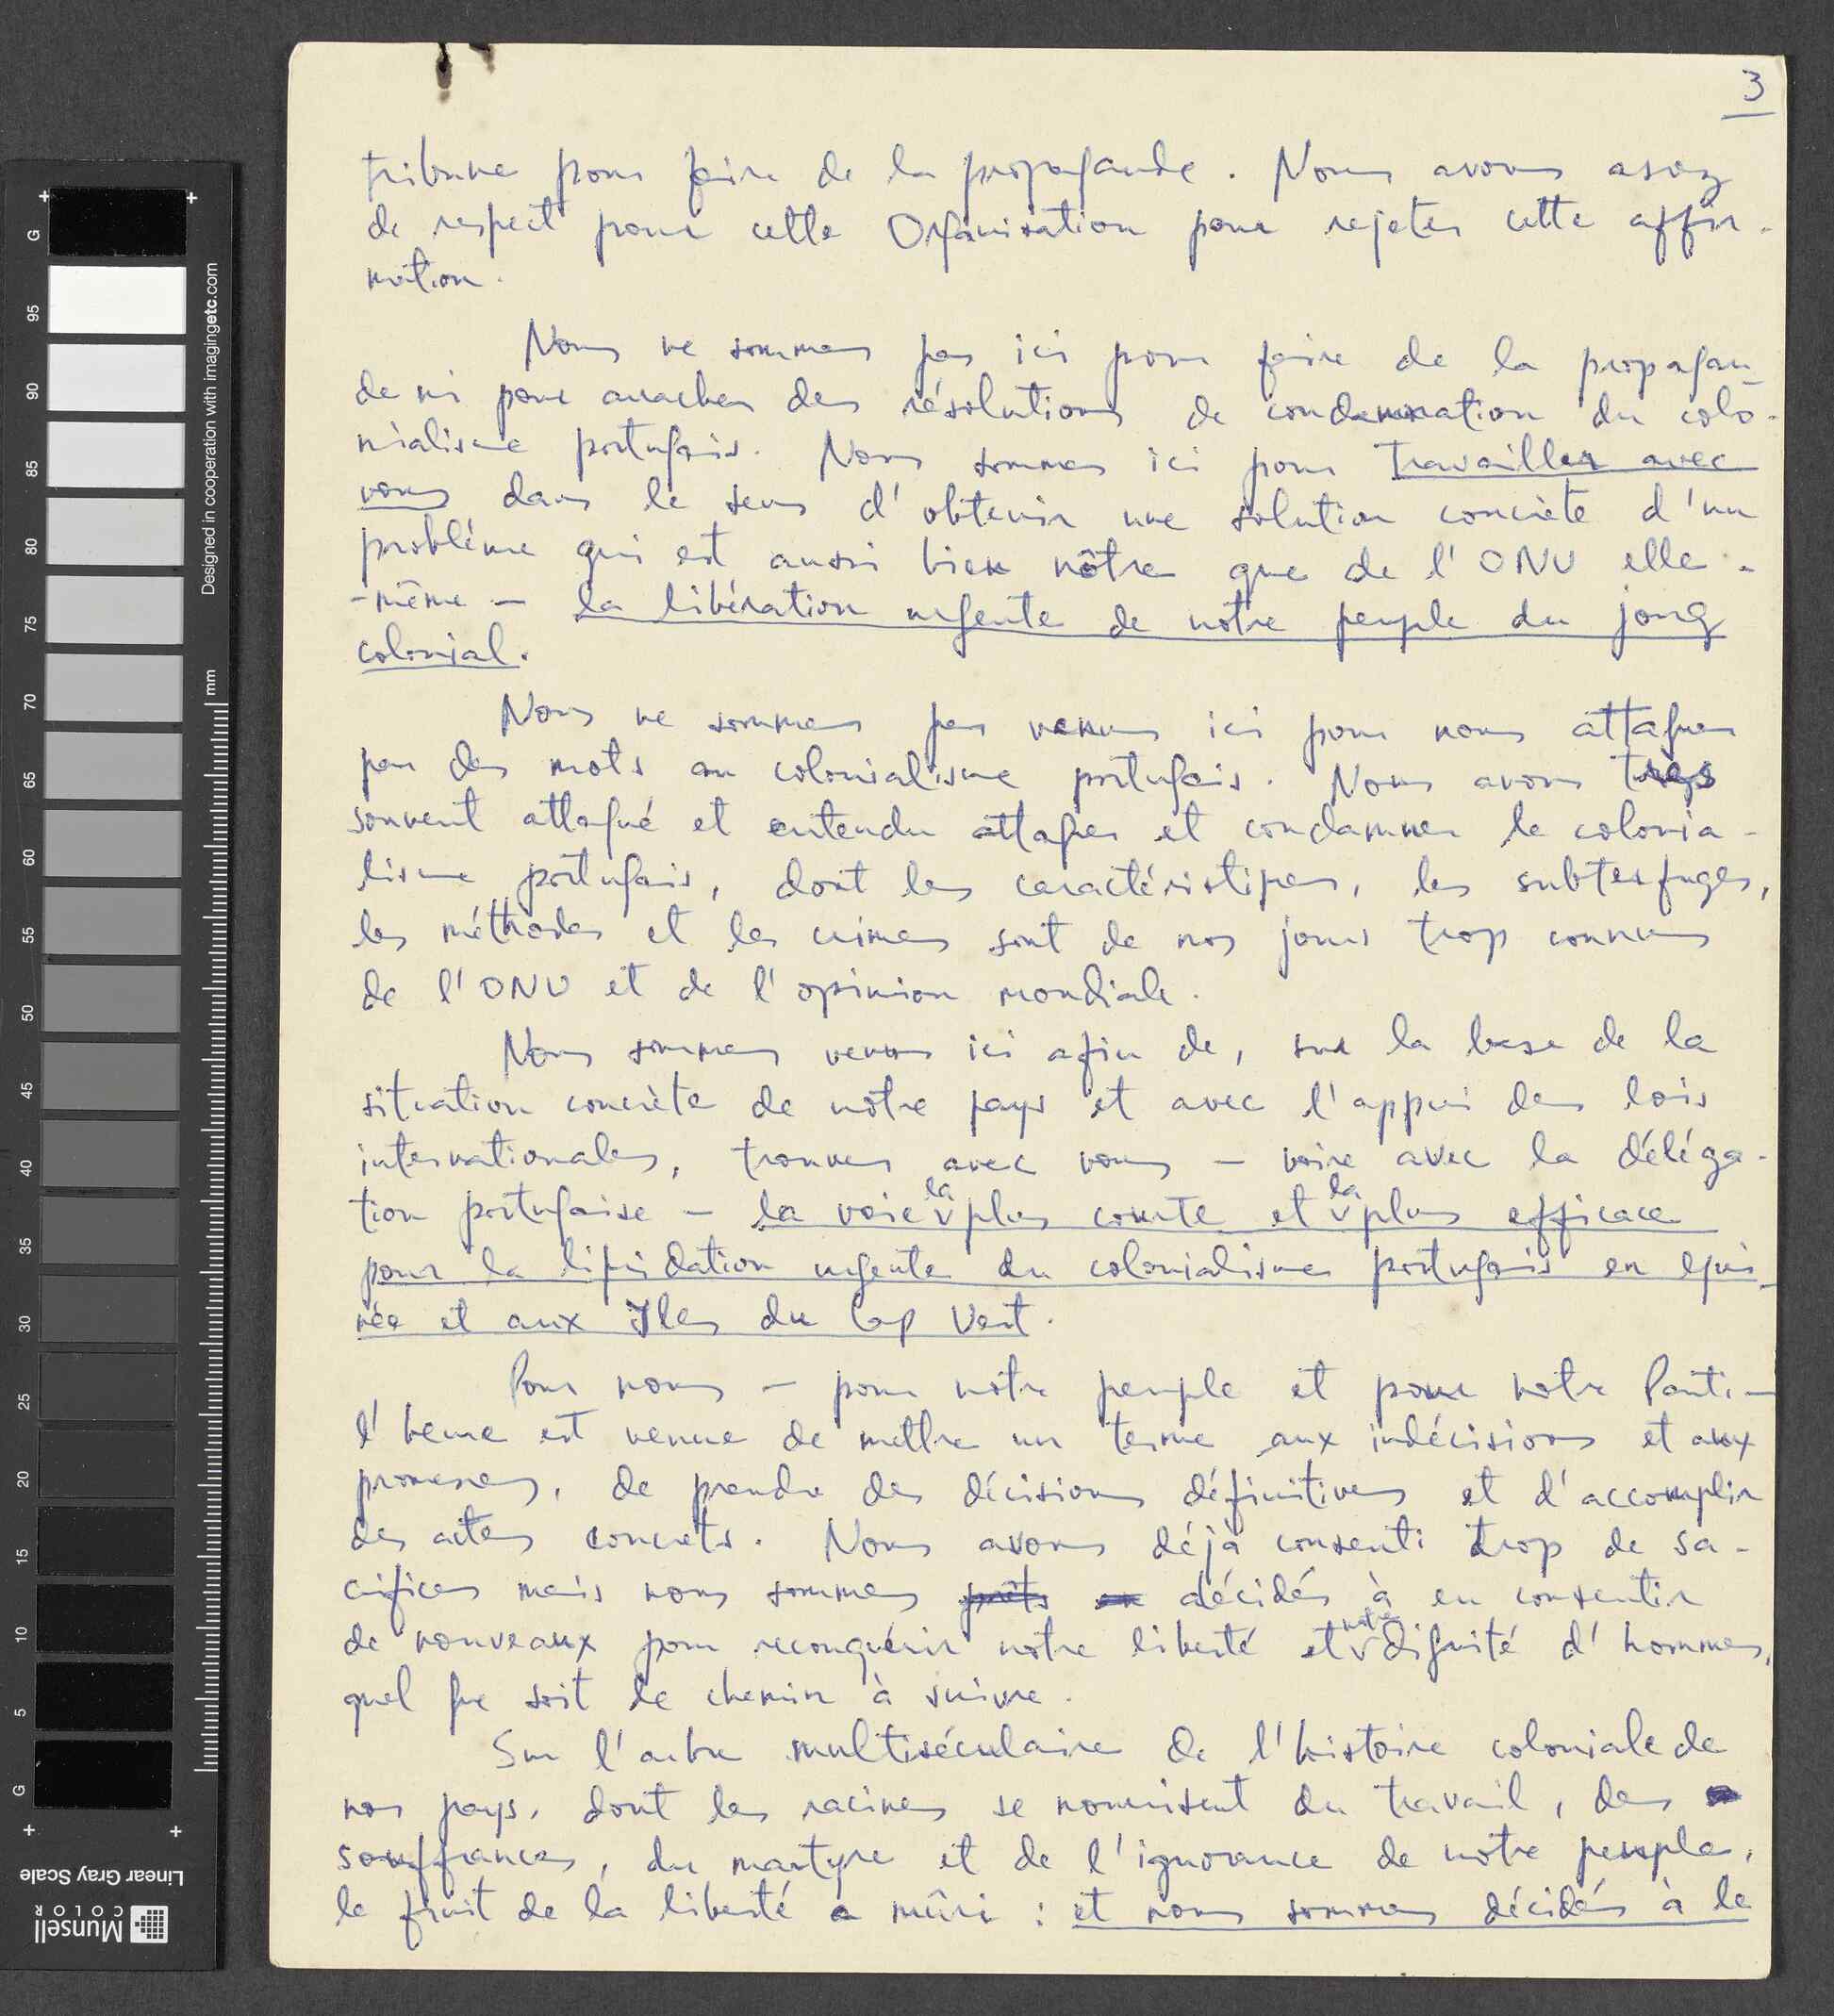 3
tribune pour faire de la propagande. Nous avons assez
de respect pour cette Organisation pour rejeter cette affir-
mation.
Nous ne sommes pas ici pour faire de la propagan-
de ni pour arracher des résolutions de condamnation du colo-
nialisme portugais. Nous sommes ici pour travailler avec
vous dans le sens d'obtenir une solution concrète d'un
problème qui est aussi bien nôtre que de l'ONU elle-
-même - la libération urgente de notre peuple du joug
colonial.
Nous ne sommes pas venus ici pour nous attaquer
par des mots au colonialisme portugais. Nous avons très
souvent attaqué et entendu attaquer et condamner le colonia-
lisme portugais, dont les caractéristiques, les subterfuges,
les méthodes et les crimes sont de nos jours trop connus
de l'ONU et de l'opinion mondiale.
Nous sommes venus ici afin de, sur la base de la
situation concrète de notre pays et avec l'appui des lois
internationales, trouver avec vous - voire avec la déléga-
tion portugaise - la voie la plus courte et la plus efficace
pour la liquidation urgente du colonialisme portugais en Gui-
née et aux Iles du Cap Vert.
Pour nous - pour notre peuple et pour notre Parti -
l'heure est venue de mettre un terme aux indécisions et aux
promesses, de prendre des décisions définitives et d'accomplir
des actes concrets. Nous avons déjà consenti trop de sa-
crifices mais nous sommes prêts en décidés à en consentir
de nouveaux pour reconquérir notre liberté et notre dignité d'hommes,
quel que soit le chemin à suivre.
Sur l'arbre multiséculaire de l'histoire coloniale de
nos pays, dont les racines se nourrissent du travail, des
souffrances, du martyre et de l'ignorance de notre peuple,
le fruit de la liberté a mûri : et nous sommes décidés à le
Designed in cooperation with imagingetc.com
mm
G
95
90
85
80
75
70
65
60
55
50
45
40
35
30
25
20
15
10
5
G
Linear Gray Scale
Munsell
COLOR